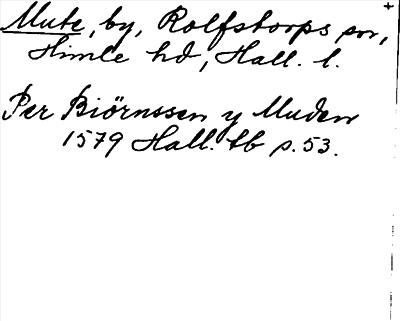 Mute, by, Rolfstorps sn,
Himle hd, Hall. l.
Per Biörnssen y Muden
1579 Hall. tb s. 53.